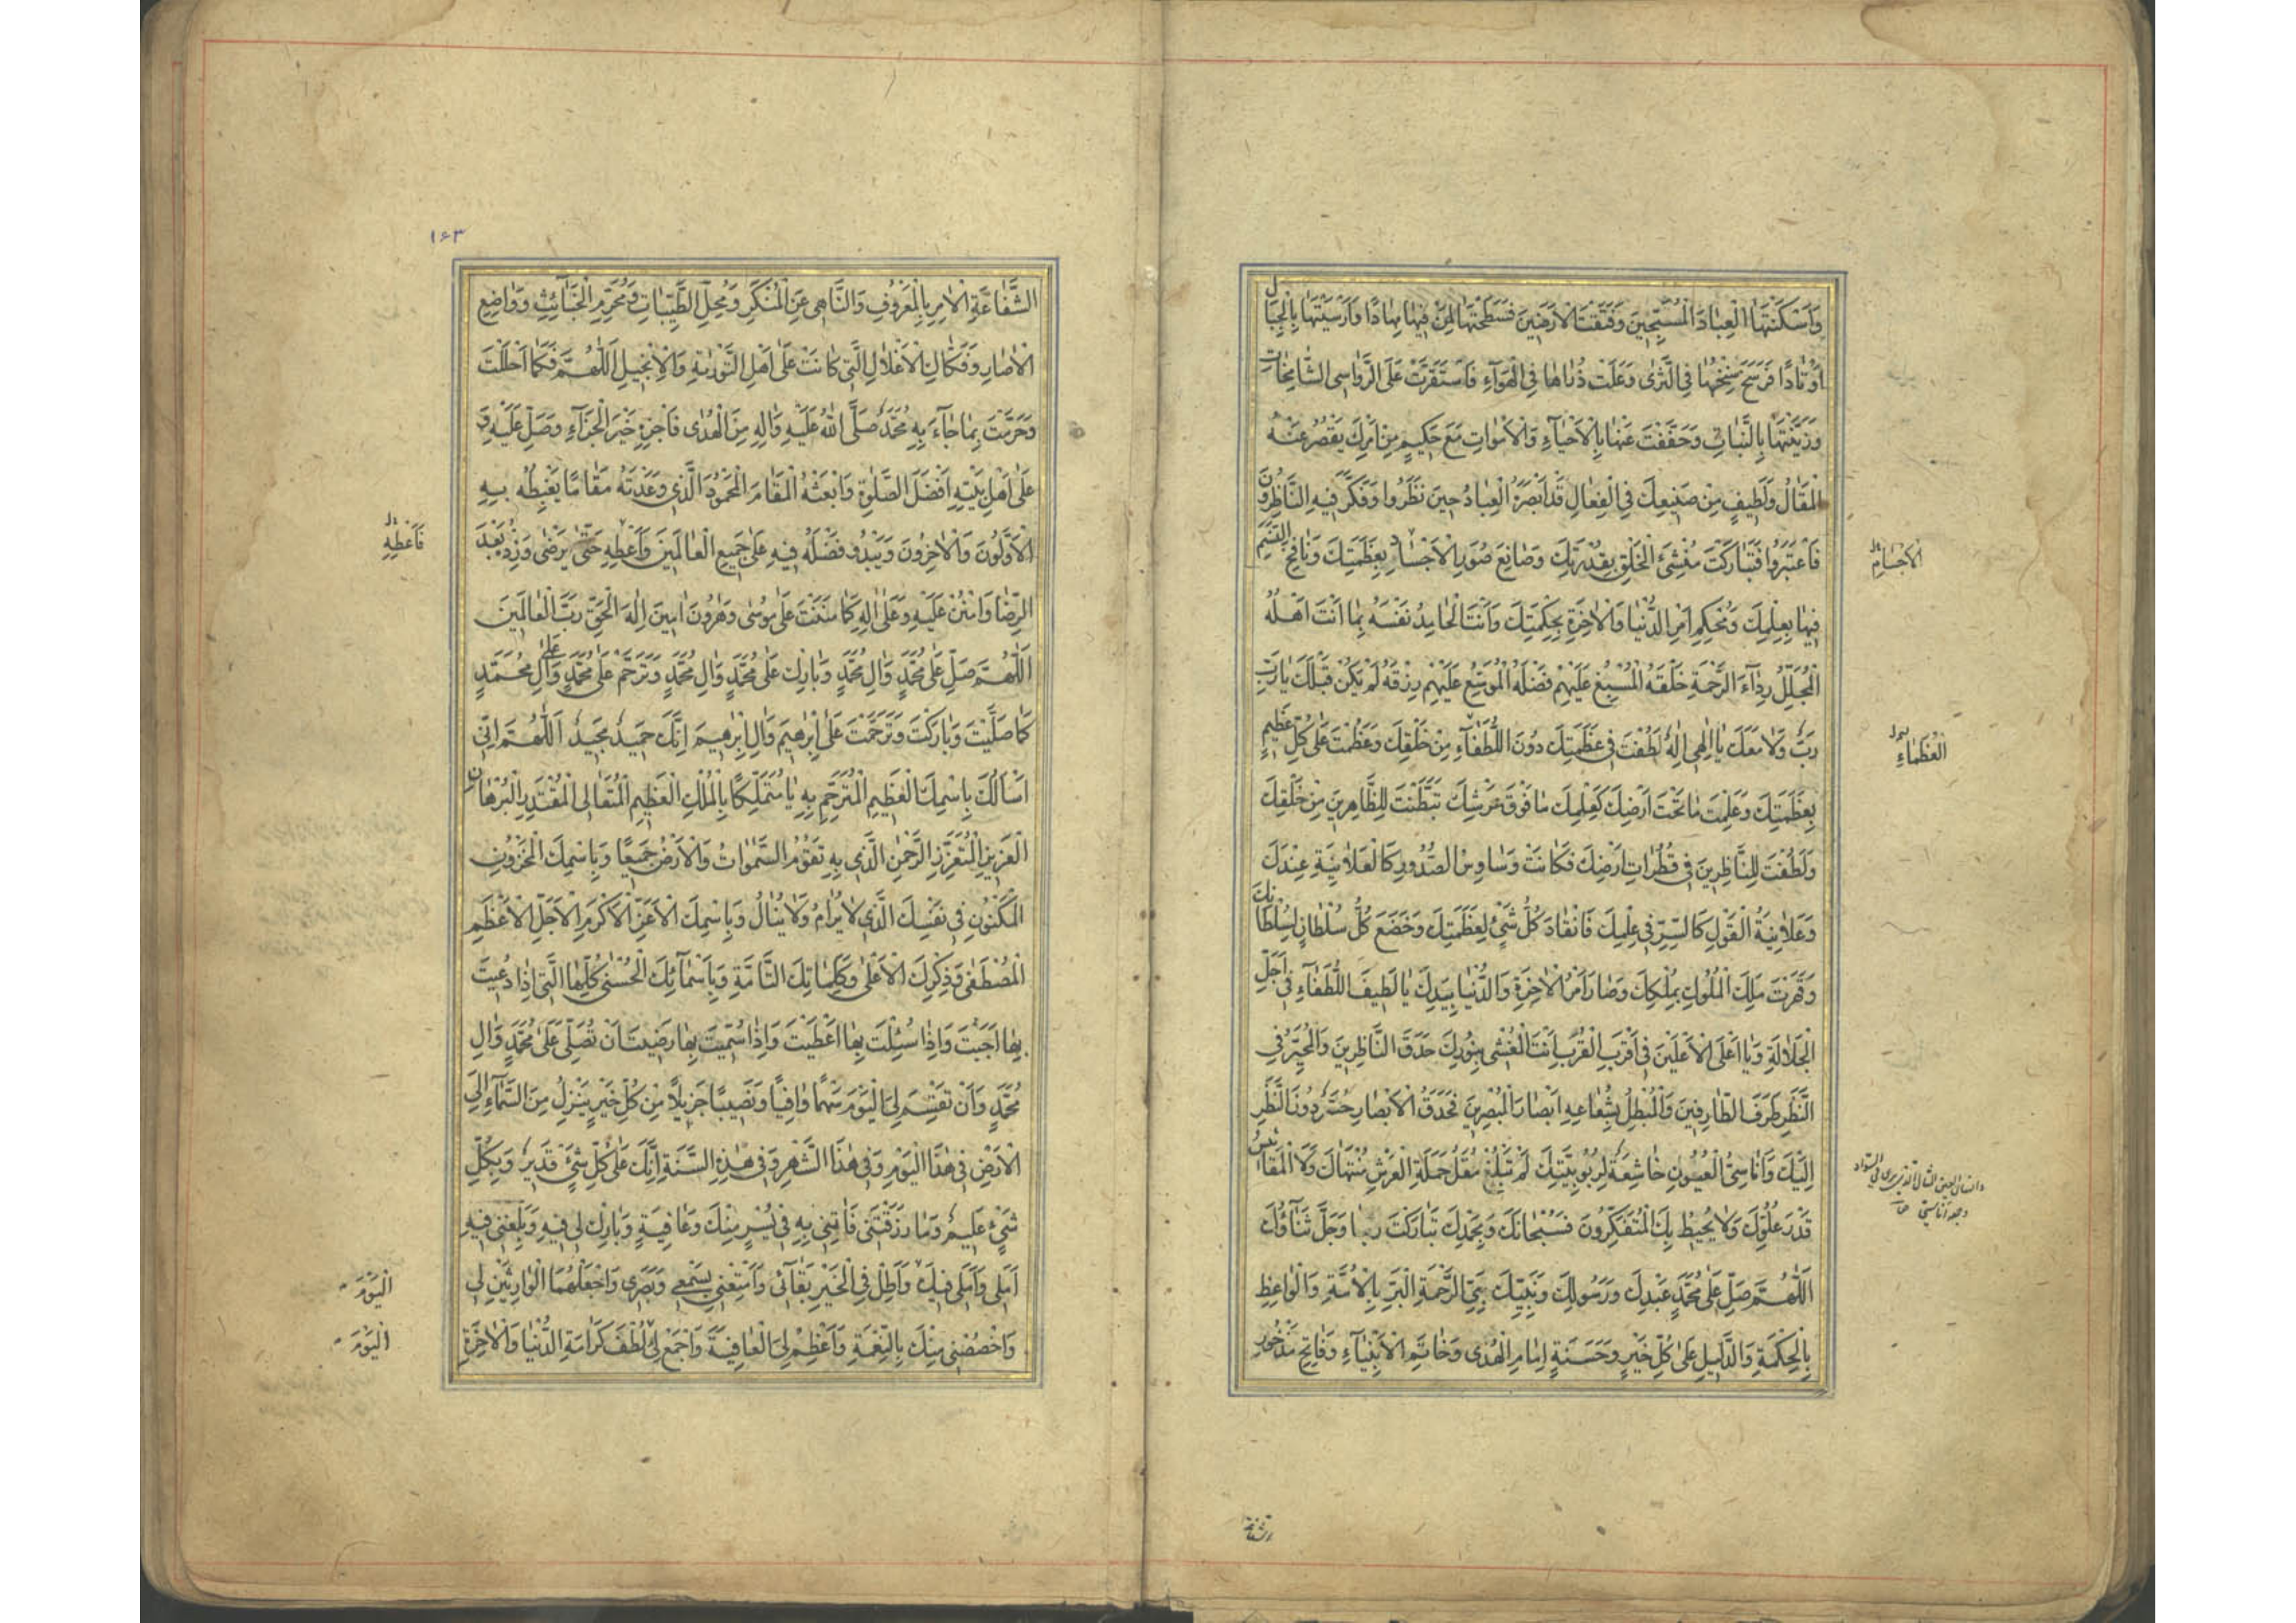 وَاَسْكَنْتَهَا الْعِبَادَ الْمُسَبِّحِينَ وَفَتَقْتَ الْاَرَضِينَ فَسَطَحْتَهَا لِمَنْ فِيهَا مِهَادًا وَاَرْسَيْتَهَا بِالْجِبَالِ
اَوْتَادًا فَرَسَخَ سِنْخُهَا فِي الثَّرٰى وَعَلَتْ ذُرٰاهٰا فِي الْهَوَاءِ فَاسْتَقَرَّتْ عَلَى الرَّوٰاسِي الشَّامِخَاتِ
وَزَيَّنْتَهَا بِالنَّبَاتِ وَخَفَّفْتَ عَنْهَا بِالْاَحْيَاءِ وَالْاَمْوَاتِ مَعَ حَكِيمٍ مِنْ اَمْرِكَ يَقْصُرُ عَنْهُ
الْمَقَالُ وَلَطِيفٍ مِنْ صَنِيعِكَ فِي الْفِعَالِ قَدْ اَبْصَرَهُ الْعِبَادُ حِينَ نَظَرُوا وَفَكَّرَ فِيهِ النَّاظِرُونَ
فَاعْتَبَرُوا فَتَبَارَكْتَ مُنْشِئَ الْخَلْقِ بِقُدْرَتِكَ وَصَانِعَ صُوَرِ الْاَجْسَادِ بِعَظَمَتِكَ وَنَافِخَ النَّسَمِ
الْاَجْسَامِ
فِيهَا بِعِلْمِكَ وَمُحْكِمِ اَمْرِ الدُّنْيَا وَالْاٰخِرَةِ بِحِكْمَتِكَ وَاَنْتَ الْحَامِدُ نَفْسَهُ بِمَا اَنْتَ اَهْلُهُ
الْمُجَلِّلُ رِدَاءَ الرَّحْمَةِ خَلْقَهُ الْمُسْبِغُ عَلَيْهِمْ فَضْلَهُ الْمُوَسِّعُ عَلَيْهِمْ رِزْقَهُ لَمْ يَكُنْ قَبْلَكَ يَا رَبِّ
رَبٌّ وَلَا مَعَكَ يَا اِلٰهِي اِلٰهٌ لَطُفْتَ فِي عَظَمَتِكَ دُونَ اللُّطَفَاءِ مِنْ خَلْقِكَ وَعَظُمْتَ عَلٰى كُلِّ عَظِيمٍ
الْعُظَمَاءِ
بِعَظَمَتِكَ وَعَلِمْتَ مَا تَحْتَ اَرْضِكَ كَعِلْمِكَ مَا فَوْقَ عَرْشِكَ تَبَطَّنْتَ لِلظَّاهِرِينَ مِنْ خَلْقِكَ
وَلَطُفْتَ لِلنَّاظِرِينَ فِي قُطُرَاتِ اَرْضِكَ فَكَانَتْ وَسَاوِسُ الصُّدُورِ كَالْعَلَانِيَةِ عِنْدَكَ
وَعَلَانِيَةُ الْقَوْلِ كَالسِّرِّ فِي عِلْمِكَ فَانْقَادَ كُلُّ شَيْءٍ لِعَظَمَتِكَ وَخَضَعَ كُلُّ سُلْطَانٍ لِسُلْطَانِكَ
وَقَهَرْتَ مَلِكَ الْمُلُوكِ بِمُلْكِكَ وَصَارَ اَمْرُ الْاٰخِرَةِ وَالدُّنْيَا بِيَدِكَ يَا لَطِيفَ اللُّطَفَاءِ فِي اَجَلِّ
الْجَلَالَةِ وَيَا اَعْلَى الْاَعْلَيْنَ فِي اَقْرَبِ الْقُرْبِ اَنْتَ الْمُغْشِي بِنُورِكَ حَدَقَ النَّاظِرِينَ وَالْمُحَيِّرُ فِي
النَّظَرِ طَرْفَ الطَّارِفِينَ وَالْمُبْطِلُ بِشُعَاعِهِ اَبْصَارَ الْمُبْصِرِينَ فَحَدَقُ الْاَبْصَارِ حُسَّرٌ دُونَ النَّظَرِ
اِلَيْكَ وَاَنَاسِيُّ الْعُيُونِ خَاشِعَةٌ لِرُبُوبِيَّتِكَ لَمْ تَبْلُغْ مُقَلُ حَمَلَةِ الْعَرْشِ مُنْتَهَاكَ وَلَا الْمَقَائِيسُ
قَدْرَ عُلُوِّكَ وَلَا يُحِيطُ بِكَ الْمُتَفَكِّرُونَ فَسُبْحَانَكَ وَبِحَمْدِكَ تَبَارَكْتَ رَبَّنَا وَجَلَّ ثَنَاؤُكَ
اَللّٰهُمَّ صَلِّ عَلٰى مُحَمَّدٍ عَبْدِكَ وَرَسُولِكَ وَنَبِيِّكَ نَبِيِّ الرَّحْمَةِ الْبَرِّ بِالْاُمَّةِ وَالْوَاعِظِ
بِالْحِكْمَةِ وَالدَّلِيلِ عَلٰى كُلِّ خَيْرٍ وَحَسَنَةٍ اِمَامِ الْهُدٰى وَخَاتَمِ الْاَنْبِيَاءِ وَفَاتِحِ مَذْخُورِ
۱۶۳
الشَّفَاعَةِ الْاٰمِرِ بِالْمَعْرُوفِ وَالنَّاهِي عَنِ الْمُنْكَرِ وَمُحِلِّ الطَّيِّبَاتِ وَمُحَرِّمِ الْخَبَائِثِ وَوَاضِعِ
الْاٰصَارِ وَفَكَّاكِ الْاَغْلَالِ الَّتِي كَانَتْ عَلٰى اَهْلِ التَّوْرٰيةِ وَالْاِنْجِيلِ اَللّٰهُمَّ فَكَمَا اَحْلَلْتَ
وَحَرَّمْتَ بِمَا جَاءَ بِهِ مُحَمَّدٌ صَلَّى اللّٰهُ عَلَيْهِ وَاٰلِهِ مِنَ الْهُدٰى فَاجْزِهِ خَيْرَ الْجَزَاءِ وَصَلِّ عَلَيْهِ وَ
عَلٰى اَهْلِ بَيْتِهِ اَفْضَلَ الصَّلٰوةِ وَابْعَثْهُ الْمَقَامَ الْمَحْمُودَ الَّذِي وَعَدْتَهُ مَقَامًا يَغْبِطُهُ بِهِ
الْاَوَّلُونَ وَالْاٰخِرُونَ وَيَبْدُو فَضْلُهُ فِيهِ عَلٰى جَمِيعِ الْعَالَمِينَ وَاَعْطِهِ حَتّٰى يَرْضٰى وَزِدْهُ بَعْدَ
فَاَعْطِهِ
الرِّضَا وَامْنُنْ عَلَيْهِ وَعَلٰى اٰلِهِ كَمَا مَنَنْتَ عَلٰى مُوسٰى وَهٰرُونَ اٰمِينَ اِلٰهَ الْحَقِّ رَبَّ الْعَالَمِينَ
اَللّٰهُمَّ صَلِّ عَلٰى مُحَمَّدٍ وَاٰلِ مُحَمَّدٍ وَبَارِكْ عَلٰى مُحَمَّدٍ وَاٰلِ مُحَمَّدٍ وَتَرَحَّمْ عَلٰى مُحَمَّدٍ وَعَلٰى اٰلِ مُحَمَّدٍ
كَمَا صَلَّيْتَ وَبَارَكْتَ وَتَرَحَّمْتَ عَلٰى اِبْرٰهِيمَ وَاٰلِ اِبْرٰهِيمَ اِنَّكَ حَمِيدٌ مَجِيدٌ اَللّٰهُمَّ اِنِّي
اَسْاَلُكَ بِاسْمِكَ الْعَظِيمِ الْمُتَرَحَّمِ بِهِ يَا مُتَمَلِّكًا بِالْمُلْكِ الْعَظِيمِ الْمُتَعَالِي الْمُقْتَدِرِ الْبُرْهَانِ
الْعَزِيزِ الْمُتَعَزِّزِ الرَّحْمٰنِ الَّذِي بِهِ تَقُومُ السَّمٰوَاتُ وَالْاَرْضُ جَمِيعًا وَبِاسْمِكَ الْمَخْزُونِ
الْمَكْنُونِ فِي نَفْسِكَ الَّذِي لَا يُرَامُ وَلَا يُنَالُ وَبِاسْمِكَ الْاَعَزِّ الْاَكْرَمِ الْاَجَلِّ الْاَعْظَمِ
الْمُصْطَفٰى وَذِكْرِكَ الْاَعْلٰى وَكَلِمَاتِكَ التَّامَّةِ وَبِاَسْمَائِكَ الْحُسْنٰى كُلِّهَا الَّتِي اِذَا دُعِيتَ
بِهَا اَجَبْتَ وَاِذَا سُئِلْتَ بِهَا اَعْطَيْتَ وَاِذَا سُمِّيتَ بِهَا رَضِيتَ اَنْ تُصَلِّيَ عَلٰى مُحَمَّدٍ وَاٰلِ
مُحَمَّدٍ وَاَنْ تَقْسِمَ لِيَ الْيَوْمَ سَهْمًا وَافِيًا وَنَصِيبًا جَزِيلًا مِنْ كُلِّ خَيْرٍ يَنْزِلُ مِنَ السَّمَاءِ اِلَى
الْاَرْضِ فِي هٰذَا الْيَوْمِ وَفِي هٰذَا الشَّهْرِ وَفِي هٰذِهِ السَّنَةِ اِنَّكَ عَلٰى كُلِّ شَيْءٍ قَدِيرٌ وَبِكُلِّ
شَيْءٍ عَلِيمٌ وَمَا رَزَقْتَنِي فَاٰتِنِي بِهِ فِي يُسْرٍ مِنْكَ وَعَافِيَةٍ وَبَارِكْ لِي فِيهِ وَبَلِّغْنِي فِيهِ
اَمَلِي وَاَمَلِي فِيكَ وَاَطِلْ فِي الْخَيْرِ بَقَائِي وَاَمْتِعْنِي بِسَمْعِي وَبَصَرِي وَاجْعَلْهُمَا الْوَارِثَيْنِ لِي
الْيَوْمَ
وَاخْصُصْنِي مِنْكَ بِالنِّعْمَةِ وَاَعْظِمْ لِيَ الْعَافِيَةَ وَاجْمَعْ لِي لُطْفَ كَرَامَةِ الدُّنْيَا وَالْاٰخِرَةِ
الْيَوْمَ